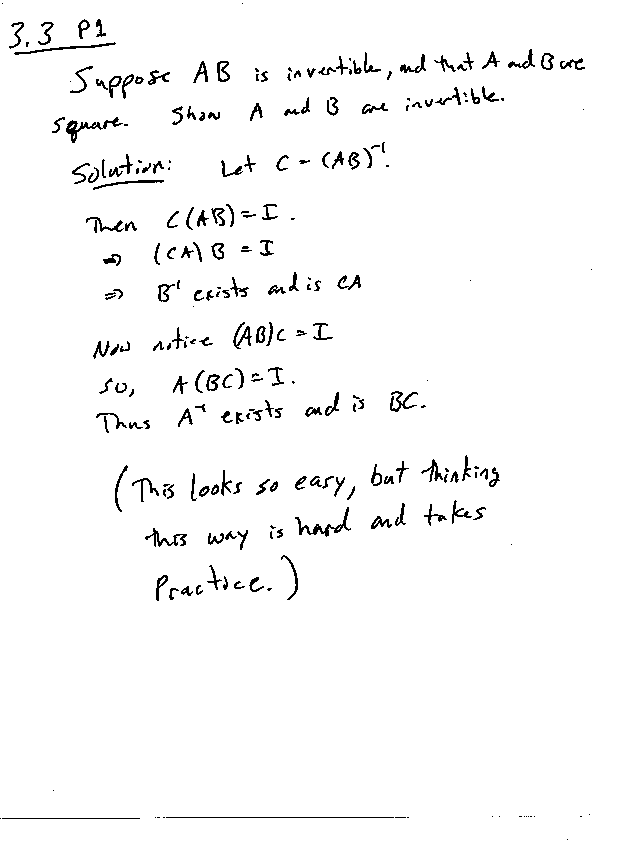 3.3 P1
Suppose AB is invertible, and that A and B are
square. Show A and B are invertible.
Solution: Let C = (AB)⁻¹.
Then C(AB) = I.
⇒ (CA)B = I
⇒ B⁻¹ exists and is CA
Now notice (AB)C = I
so, A(BC) = I.
Thus A⁻¹ exists and is BC.
(This looks so easy, but thinking
this way is hard and takes
Practice.)